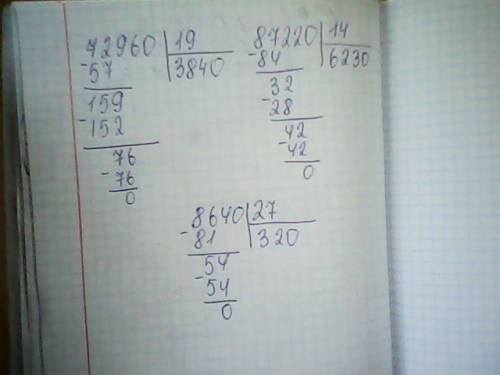 72960 | 19
-57 | 3840
159
-152
76
-76
0
87220 | 14
-84 | 6230
32
-28
42
-42
0
8640 | 27
-81 | 320
54
-54
0